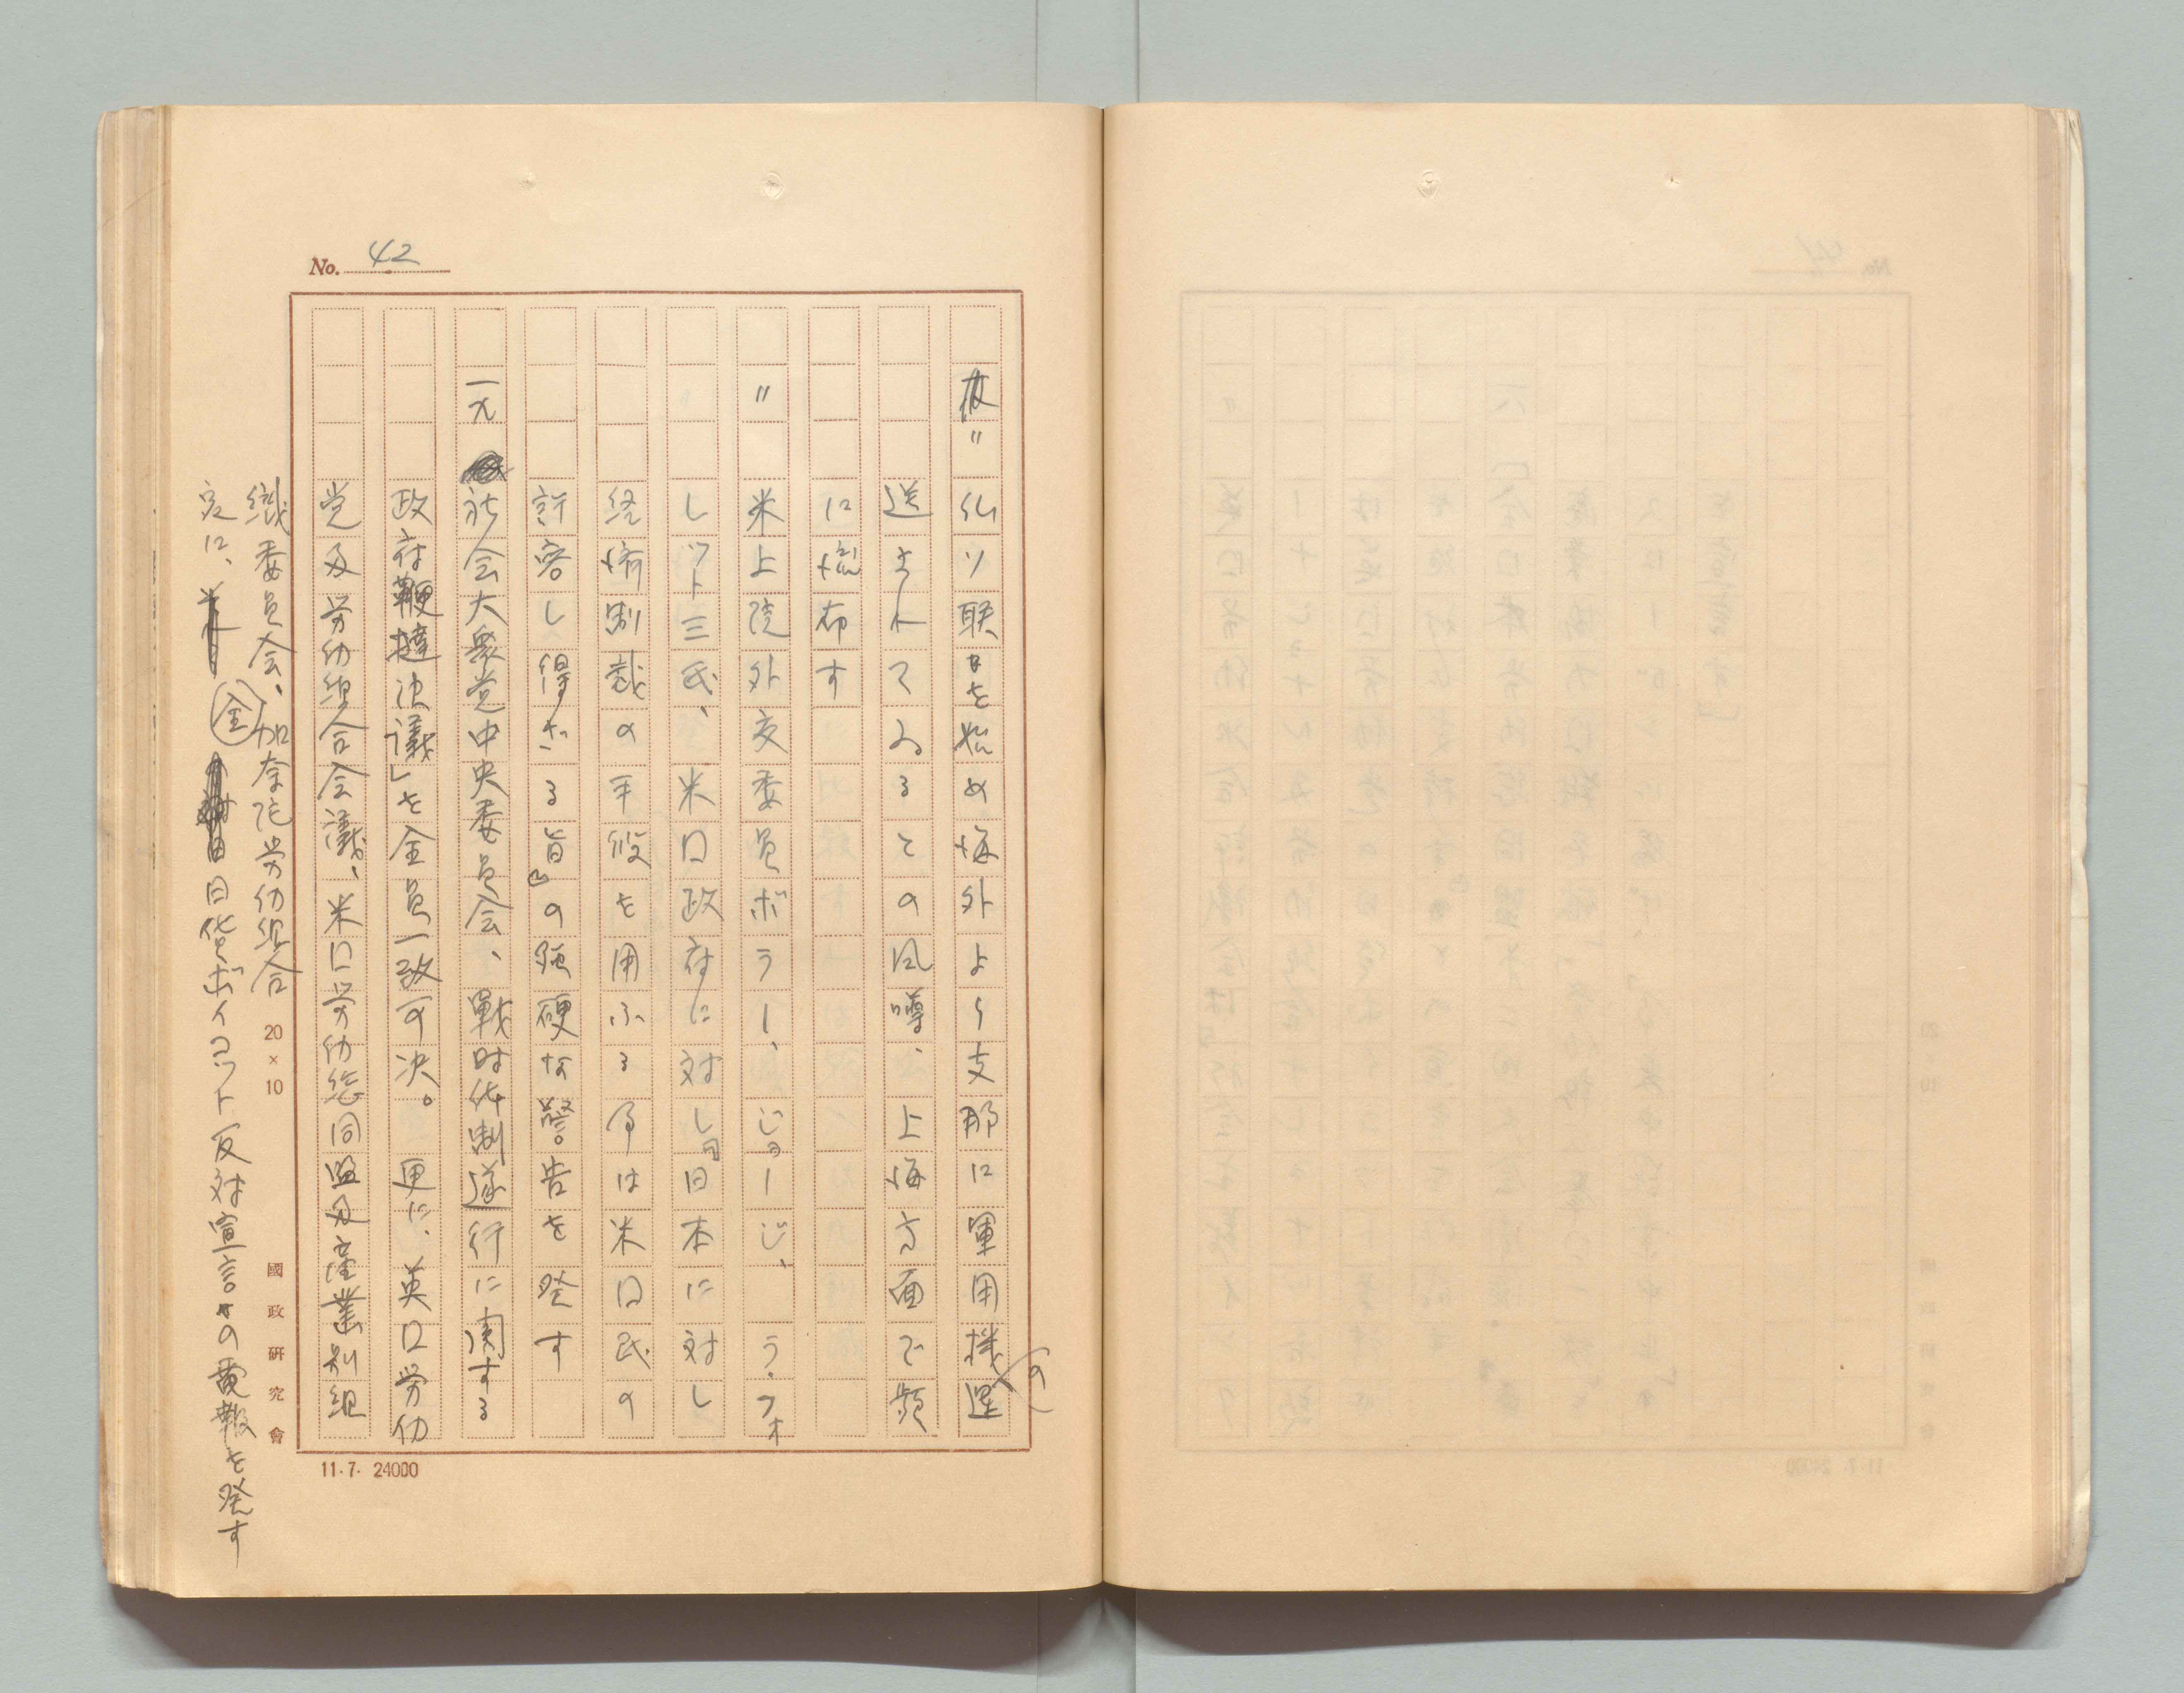 No. 42
〃 仏ソ联を始め海外より支那に軍用機の運
送されてゐるとの風噂、上海方面で頻
に流布す
〃 米上院外交委員ボラー、ジョージ、ラ・フォ
レット三氏、米口政府に対し「日本に対し
経済制裁の手段を用ふる事は米口民の
許容し得ざる旨」の强硬な警告を発す
一九 社会大衆党中央委員会、戰时体制遂行に関する
政府鞭撻決議」を全員一致可决。更に、英口労仂
党及労仂組合会議、米口労仂総同盟及產業別組
織委員会、加奈陀労仂組合
定に、全日貨ボイコット反対宣言の電報を発す
20×10
國政研究會
11.7. 24000